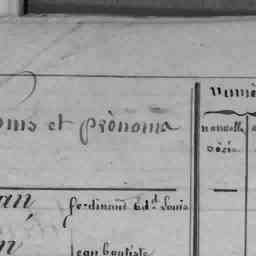 oms et prénoms
numé
nouvelle
série
an ferdinand Ed.d Louis
n jean baptiste